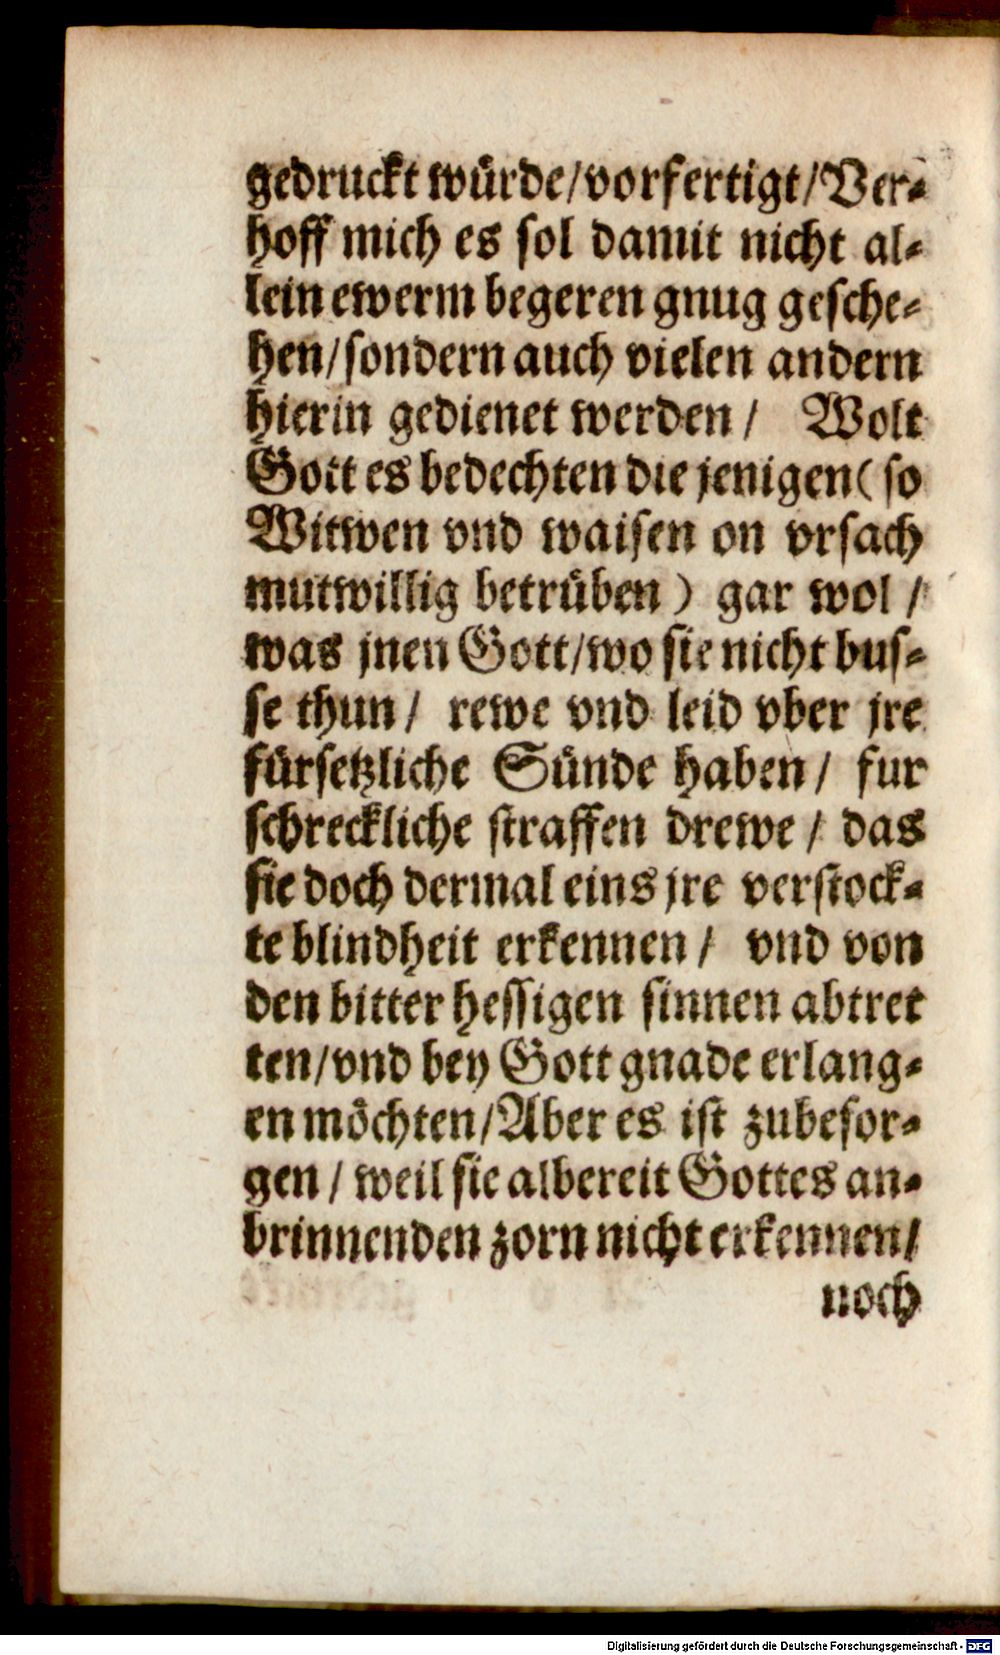 gedruckt würde/vorfertigt/Ver-
hoff mich es sol damit nicht al-
lein ewerm begeren gnug gesche-
hen/sondern auch vielen andern
hierin gedienet werden/ Wolt
Gott es bedechten die jenigen (so
Witwen vnd waisen on vrsach
mutwillig betrüben) gar wol /
was jnen Gott/wo sie nicht bus-
se thun/ rewe vnd leid vber jre
fürsetzliche Sünde haben/ fur
schreckliche straffen drewe / das
sie doch dermal eins jre verstock-
te blindheit erkennen/ vnd von
den bitter hessigen sinnen abtret
ten/vnd bey Gott gnade erlang-
en möchten/Aber es ist zubefor-
gen / weil sie albereit Gottes an-
brinnenden zorn nicht erkennen/
noch
Digitalisierung gefördert durch die Deutsche Forschungsgemeinschaft - DFG